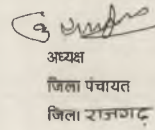 अध्यक्ष
जिला पंचायत
जिला राजगढ़